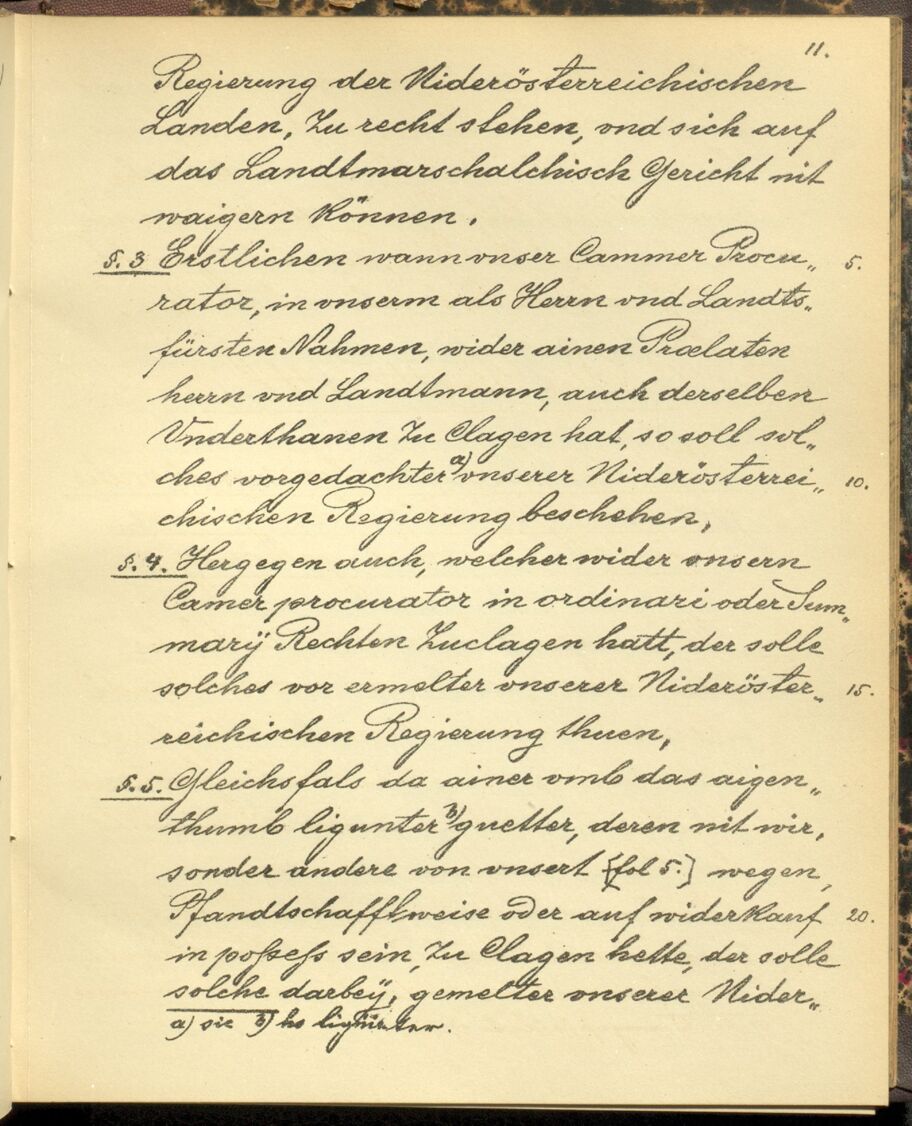 11.
Regierung der Niderösterreichischen
Landen, Zu recht stehen, vnd sich auf
das Landtmarschalchisch Gericht nit
waigern können.
§. 3 Erstlichen wann vnser Cammer Procu„ 5.
rator, in vnserm als Herrn vnd Landts„
fürsten Nahmen, wider ainen Prælaten
herrn vnd Landtmann, auch derselben
Vnderthanen Zu Clagen hat, so soll sol„
ches vorgedachter a) vnserer Niderösterrei„ 10.
chischen Regierung beschehen,
§. 4. Hergegen auch, welcher wider vnsern
Camer procurator in ordinari oder Sum„
marÿ Rechten Zuclagen hatt, der solle
solches vor ermelter vnserer Nideröster„ 15.
reichischen Regierung thuen,
§. 5. Gleichsfals da ainer vmb das aigen„
thumb ligunter b) guetter, deren nit wir,
sonder andere von vnsert [fol 5.] wegen,
Pfandtschafftweise oder auf widerkauf 20.
in poßeß sein, Zu Clagen hette, der solle
solche darbeÿ, gemelter vnserer Nider„
a) sic b) hs ligünter.